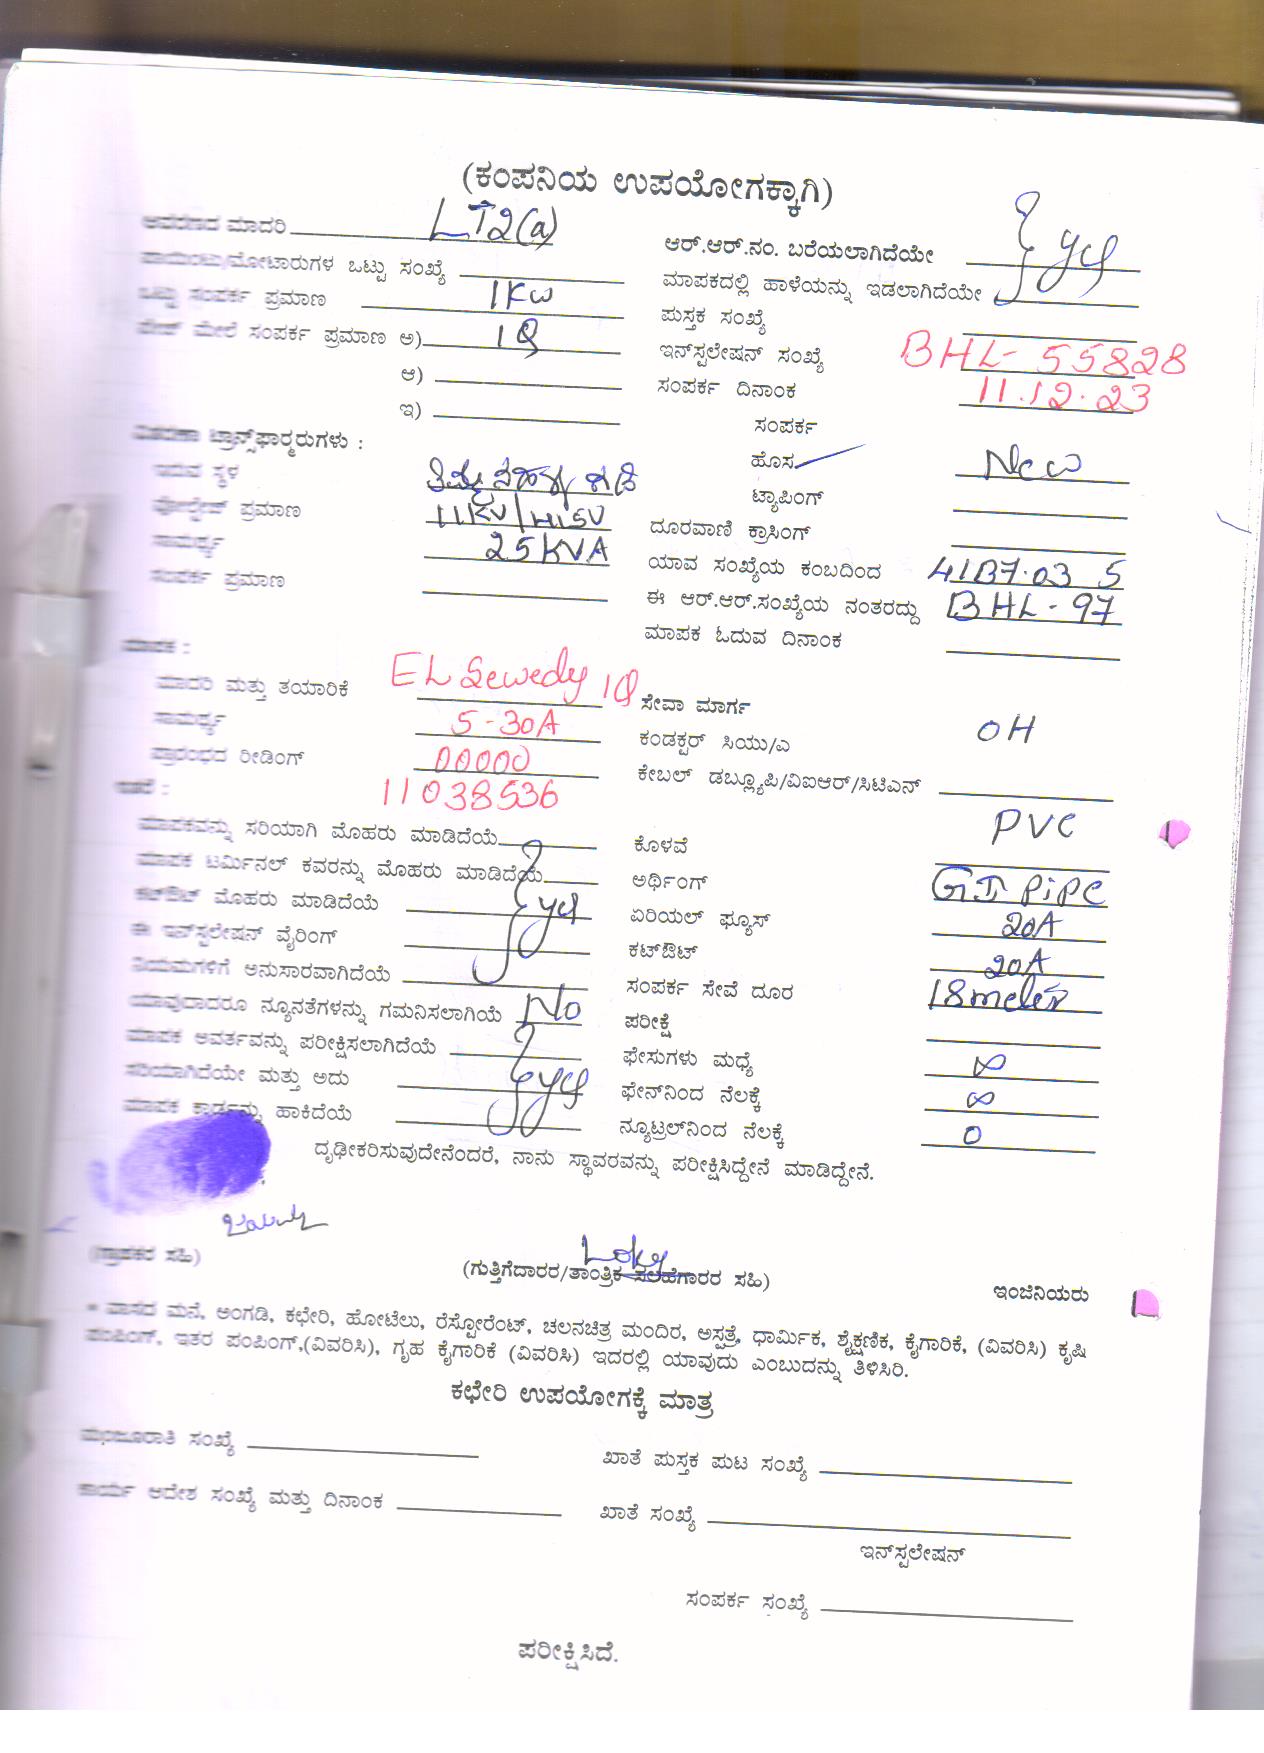 (ಕಂಪನಿಯ ಉಪಯೋಗಕ್ಕಾಗಿ)
ಆವರಣದ ಮಾದರಿ LT2(a)
ಆರ್.ಆರ್.ನಂ. ಬರೆಯಲಾಗಿದೆಯೇ
ಪಾಯಿಂಟು/ಮೋಟಾರುಗಳ ಒಟ್ಟು ಸಂಖ್ಯೆ
ಮಾಪಕದಲ್ಲಿ ಹಾಳೆಯನ್ನು ಇಡಲಾಗಿದೆಯೇ
ಒಟ್ಟು ಸಂಪರ್ಕ ಪ್ರಮಾಣ 1KW
ಪುಸ್ತಕ ಸಂಖ್ಯೆ
ಮೇಲೆ ಸಂಪರ್ಕ ಪ್ರಮಾಣ ಅ)
ಇನ್‌ಸ್ಟಲೇಷನ್ ಸಂಖ್ಯೆ BHL-55828
ಆ)
ಸಂಪರ್ಕ ದಿನಾಂಕ 11.12.23
ಇ)
ಸಂಪರ್ಕ
ವಿತರಣಾ ಟ್ರಾನ್ಸ್‌ಫಾರ್ಮರುಗಳು :
ಹೊಸ New
ಇರುವ ಸ್ಥಳ
ಟ್ಯಾಪಿಂಗ್
ವೋಲ್ಟೇಜ್ ಪ್ರಮಾಣ 11KV/
ದೂರವಾಣಿ ಕ್ರಾಸಿಂಗ್
ಸಾಮರ್ಥ್ಯ 25KVA
ಯಾವ ಸಂಖ್ಯೆಯ ಕಂಬದಿಂದ
ಸಂಪರ್ಕ ಪ್ರಮಾಣ
ಈ ಆರ್.ಆರ್.ಸಂಖ್ಯೆಯ ನಂತರದ್ದು BHL-97
ಮಾಪಕ ಓದುವ ದಿನಾಂಕ
ಮಾಪಕ :
ಮಾದರಿ ಮತ್ತು ತಯಾರಿಕೆ EL Sewedy
ಸೇವಾ ಮಾರ್ಗ
ಸಾಮರ್ಥ್ಯ 5-30A
ಕಂಡಕ್ಟರ್ ಸಿಯು/ಎ OH
ಪ್ರಾರಂಭದ ರೀಡಿಂಗ್ 00000
ಕೇಬಲ್ ಡಬ್ಲ್ಯೂಪಿ/ವಿಐಆರ್/ಸಿಟಿಎನ್
11038536
ಮಾಪಕವನ್ನು ಸರಿಯಾಗಿ ಮೊಹರು ಮಾಡಿದೆಯೆ
ಕೊಳವೆ PVC
ಮಾಪಕ ಟರ್ಮಿನಲ್ ಕವರನ್ನು ಮೊಹರು ಮಾಡಿದೆಯೆ
ಅರ್ಥಿಂಗ್ GI Pipe
ಕಟ್‌ಔಟ್ ಮೊಹರು ಮಾಡಿದೆಯೆ
ಏರಿಯಲ್ ಫ್ಯೂಸ್ 20A
ಈ ಇನ್‌ಸ್ಟಲೇಷನ್ ವೈರಿಂಗ್
ಕಟ್‌ಔಟ್ 20A
ನಿಯಮಗಳಿಗೆ ಅನುಸಾರವಾಗಿದೆಯೆ
ಸಂಪರ್ಕ ಸೇವೆ ದೂರ 18meter
ಯಾವುದಾದರೂ ನ್ಯೂನತೆಗಳನ್ನು ಗಮನಿಸಲಾಗಿಯೆ No
ಪರೀಕ್ಷೆ
ಮಾಪಕ ಆವರ್ತವನ್ನು ಪರೀಕ್ಷಿಸಲಾಗಿದೆಯೆ
ಫೇಸುಗಳು ಮಧ್ಯೆ ∞
ಸರಿಯಾಗಿದೆಯೇ ಮತ್ತು ಅದು
ಫೇನ್‌ನಿಂದ ನೆಲಕ್ಕೆ ∞
ಮಾಪಕ ಕಾರ್ಡನ್ನು ಹಾಕಿದೆಯೆ
ನ್ಯೂಟ್ರಲ್‌ನಿಂದ ನೆಲಕ್ಕೆ 0
ದೃಢೀಕರಿಸುವುದೇನೆಂದರೆ, ನಾನು ಸ್ಥಾವರವನ್ನು ಪರೀಕ್ಷಿಸಿದ್ದೇನೆ ಮಾಡಿದ್ದೇನೆ.
(ಗ್ರಾಹಕರ ಸಹಿ)
(ಗುತ್ತಿಗೆದಾರರ/ತಾಂತ್ರಿಕ ಸಲಹೆಗಾರರ ಸಹಿ)
ಇಂಜಿನಿಯರು
* ವಾಸದ ಮನೆ, ಅಂಗಡಿ, ಕಛೇರಿ, ಹೋಟೆಲು, ರೆಸ್ಟೋರೆಂಟ್, ಚಲನಚಿತ್ರ ಮಂದಿರ, ಅಸ್ಪತ್ರೆ, ಧಾರ್ಮಿಕ, ಶೈಕ್ಷಣಿಕ, ಕೈಗಾರಿಕೆ, (ವಿವರಿಸಿ) ಕೃಷಿ
ಪಂಪಿಂಗ್, ಇತರ ಪಂಪಿಂಗ್,(ವಿವರಿಸಿ), ಗೃಹ ಕೈಗಾರಿಕೆ (ವಿವರಿಸಿ) ಇದರಲ್ಲಿ ಯಾವುದು ಎಂಬುದನ್ನು ತಿಳಿಸಿರಿ.
ಕಛೇರಿ ಉಪಯೋಗಕ್ಕೆ ಮಾತ್ರ
ಮಂಜೂರಾತಿ ಸಂಖ್ಯೆ
ಖಾತೆ ಪುಸ್ತಕ ಪುಟ ಸಂಖ್ಯೆ
ಕಾರ್ಯ ಆದೇಶ ಸಂಖ್ಯೆ ಮತ್ತು ದಿನಾಂಕ
ಖಾತೆ ಸಂಖ್ಯೆ
ಇನ್‌ಸ್ಟಲೇಷನ್
ಸಂಪರ್ಕ ಸಂಖ್ಯೆ
ಪರೀಕ್ಷಿಸಿದೆ.